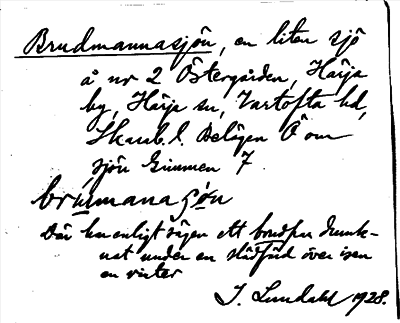 Brudmannasjön, en liten sjö
å nr 2 Östergården, Härja
by, Härja sn, Vartofta hd,
Skarab. l. Belägen Ö om
sjön Gimmen 7.
brummana sjön
Där har enligt sägen ett brudpar drunk-
nat under en slädfärd över isen
en vinter
J. Lundahl 1928.